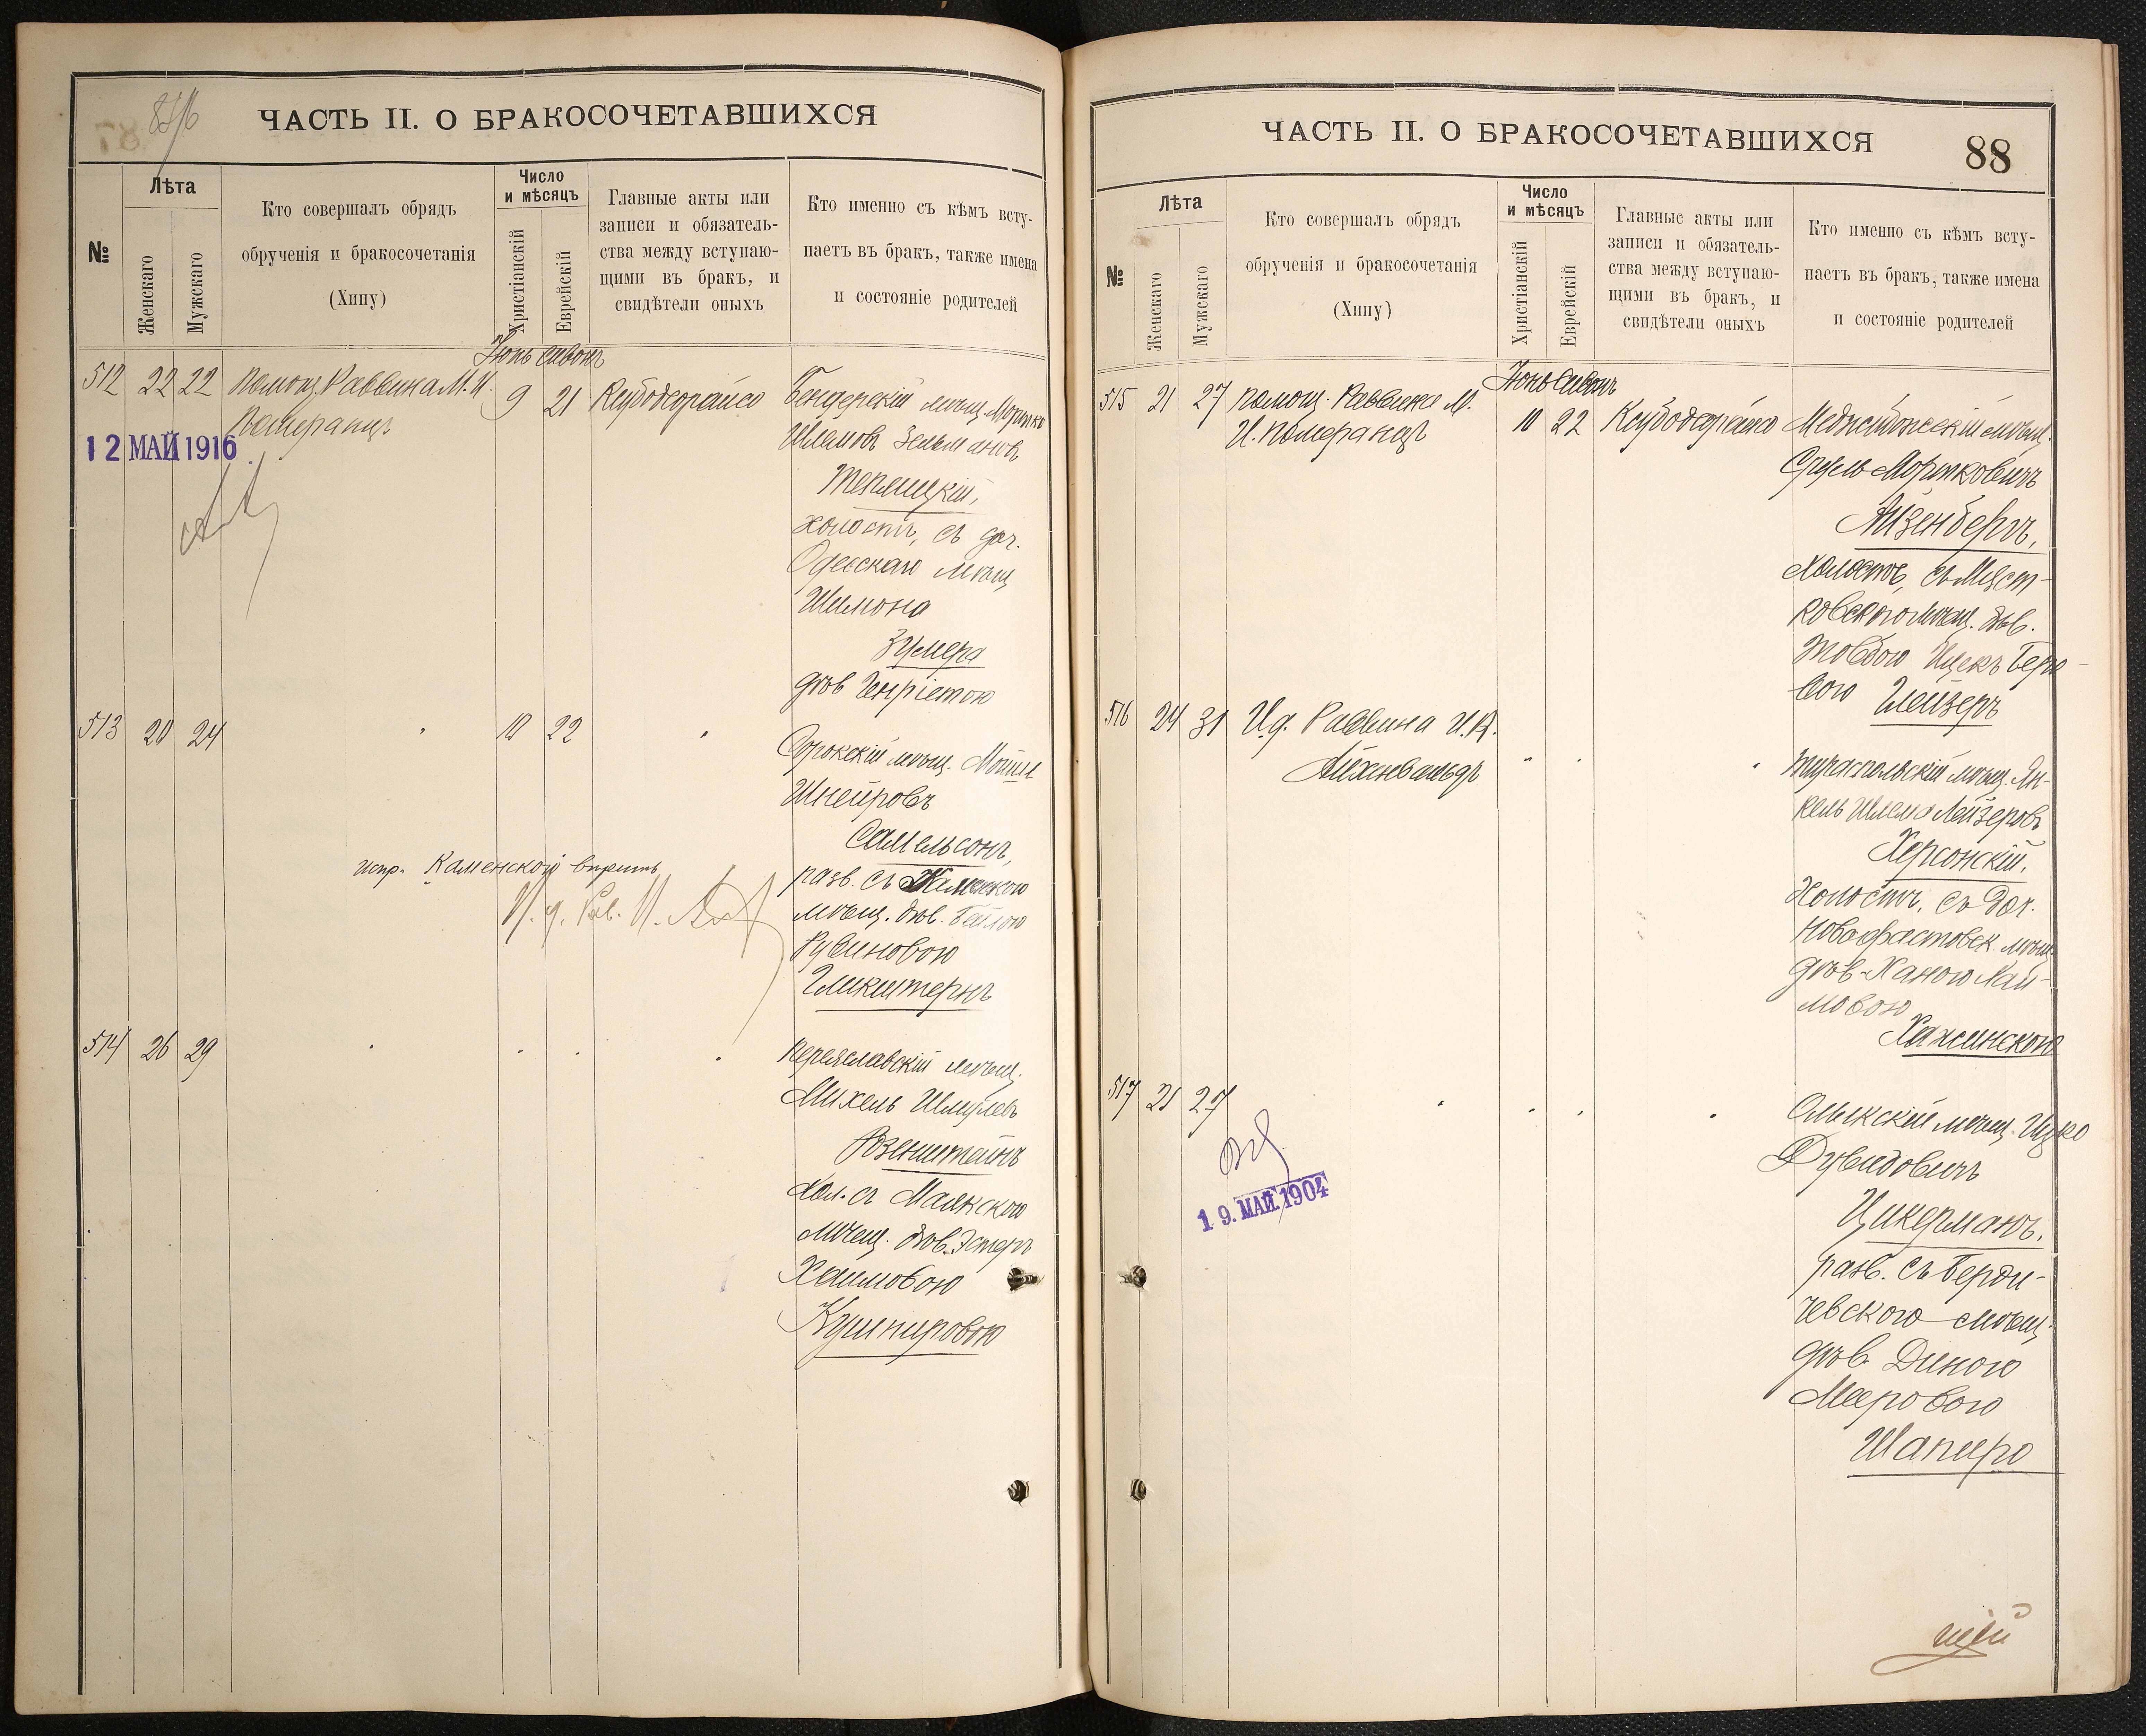 ЧАСТЬ II. О БРАКОСОЧЕТАВШИХСЯ
№
Лѣта
Женскаго
Мужскаго
Кто совершалъ обрядъ
обрученія и бракосочетанія
(Хипу)
Число
и мѣсяцъ
Христіанскій
Еврейскій
Главные акты или
записи и обязатель-
ства между вступаю-
щими въ бракъ, и
свидѣтели оныхъ
Кто именно съ кѣмъ всту-
паетъ въ бракъ, также имена
и состояніе родителей
Іюнь Сивонъ
512 22 22 Помощ. Раввина М. И.
Померанцъ
9 21
Бендерскій мѣщ. Мордко
Шлемовъ Зельмановъ
Теплицкій,
холостъ, съ доч.
Одесскаго мѣщ.
Шимона
Зумера
дѣв Генріетою
12 МАЙ 1916
513 20 24 " 10 22 "
Сорокскій мѣщ. Мошко
Шнеировъ
Самельсонъ,
разв. съ Каменскою
мѣщ. дѣв. Бейлою
Рувиновою
Гликштернъ
испр. Каменской вѣрить
И. д. Рав. И.
514 26 29 " " " "
Переяславскій мѣщ.
Михель Шмулевъ
Розенштейнъ
хол. съ Маякскою
мѣщ. дѣв. Эстеръ
Хаимовою
Кушнировою
ЧАСТЬ II. О БРАКОСОЧЕТАВШИХСЯ
88
№
Лѣта
Женскаго
Мужскаго
Кто совершалъ обрядъ
обрученія и бракосочетанія
(Хипу)
Число
и мѣсяцъ
Христіанскій
Еврейскій
Главные акты или
записи и обязатель-
ства между вступаю-
щими въ бракъ, и
свидѣтели оныхъ
Кто именно съ кѣмъ всту-
паетъ въ бракъ, также имена
и состояніе родителей
Іюнь Сивонъ
515 21 27 Помощ. Раввина М.
И. Померанцъ
10 22
Меджибожскій мѣщ.
Сруль Мордковичъ
Айзенбергъ,
холостъ, съ
мѣщ. дѣв.
Товбою Ицекъ Берко-
вою Глейзеръ
516 24 31 И.д. Раввина И. А.
Айхенвальдъ
" " "
Тираспольскій мѣщ. Ян-
кель Шлема Лейзеровъ
Херсонскій,
Холостъ, съ доч.
мѣщ.
дѣв. Ханою Хаи-
мовою
Хажинскою
517 21 27 " " " "
мѣщ. Ицко
Дувидовичъ
Цикерманъ,
разв. съ Берди-
чевскою мѣщ.
дѣв Диною
Мееровою
Шапиро
19. МАЙ. 1904